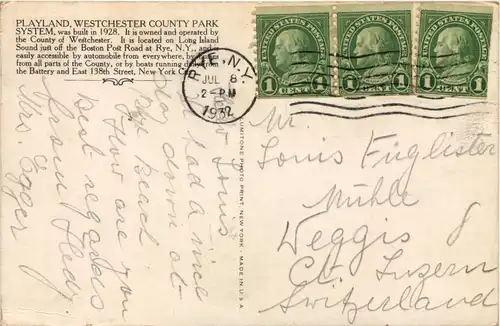 PLAYLAND, WESTCHESTER COUNTY PARK
SYSTEM, was built in 1928. It is owned and operated by
the County of Westchester. It is located on Long Island
Sound just off the Boston Post Road at Rye, N.Y., and is
easily accessible by automobile from everywhere, by
from all parts of the County, or by boats running daily from
the Battery and East 138th Street, New York
RYE. N.Y.
JUL 8
2-PM
1932
UNITED STATES POSTAGE
1 CENT 1
UNITED STATES POSTAGE
1 CENT 1
UNITED STATES POSTAGE
1 CENT 1
Louis
had a nice
day down at
Rye Beach
How are you
best regards
from Hedy
Mrs. Egger
LUMITONE PHOTO PRINT, NEW YORK. MADE IN U.S.A.
Mr.
Louis Englister
Mühle
Weggis
Ct. Luzern
Switzerland